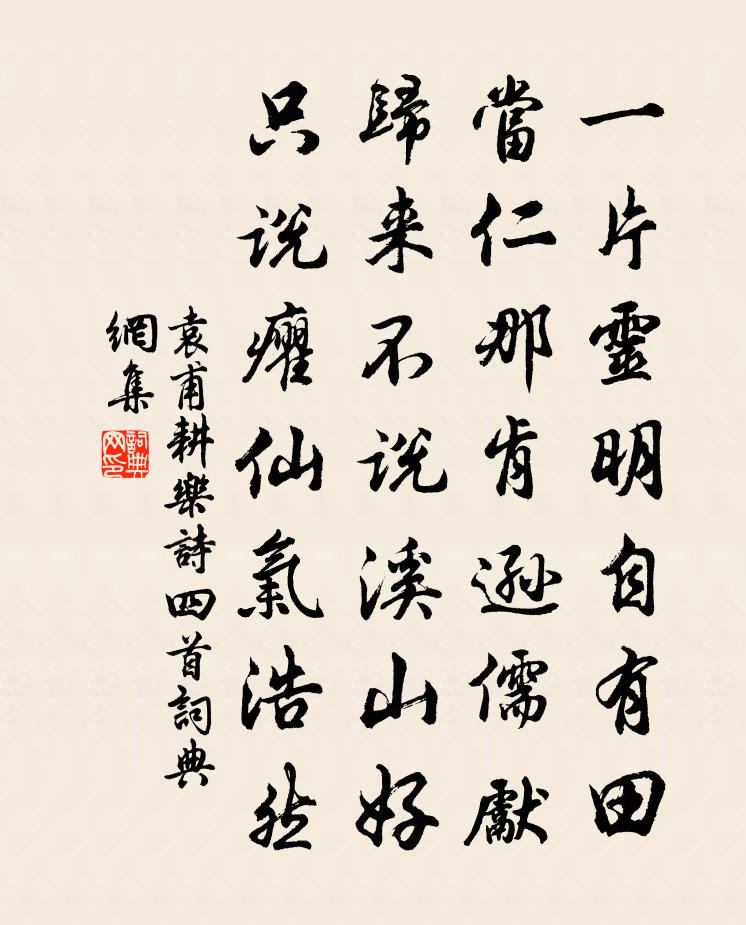 一片靈明自有田
當仁那肯遜儒獻
歸来不説溪山好
只説癯仙氣浩然
袁甫耕樂詩四首詞典
網集
詞典
网印